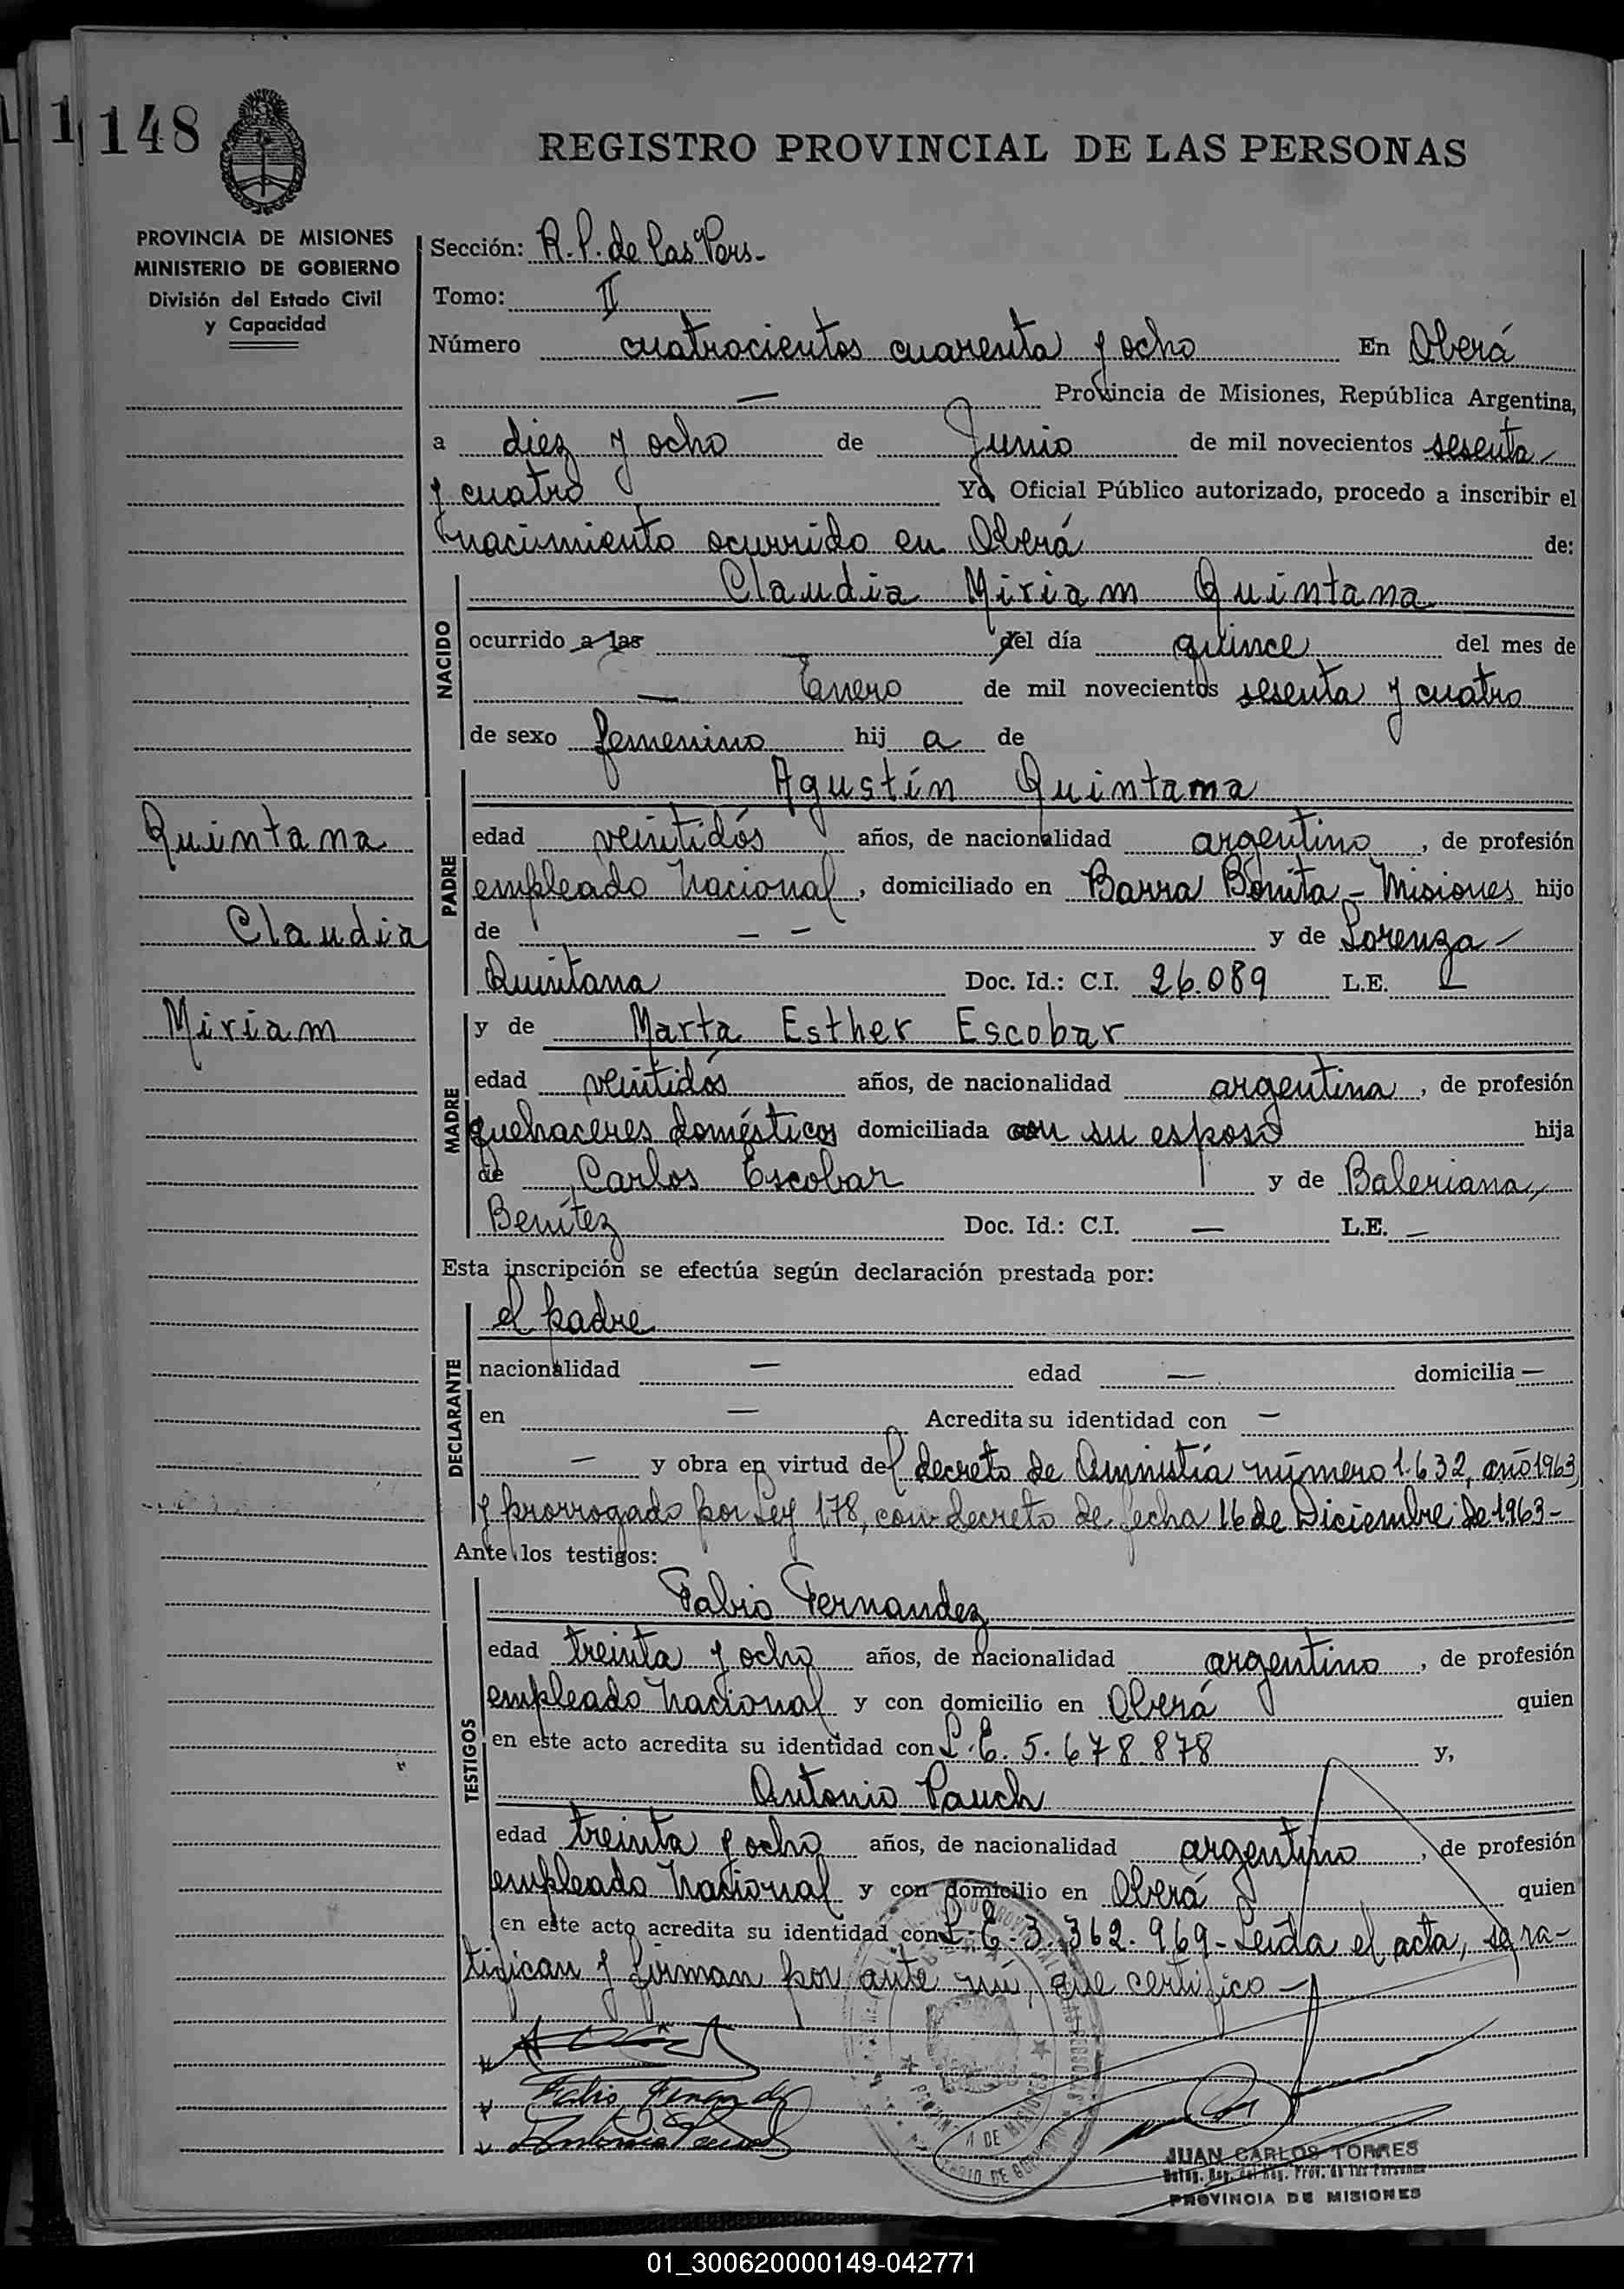 1148
REGISTRO PROVINCIAL DE LAS PERSONAS
PROVINCIA DE MISIONES
MINISTERIO DE GOBIERNO
División del Estado Civil
y Capacidad
Sección: R. P. de las Pers.-
Tomo: II
Número cuatrocientos cuarenta y ocho En Oberá
— Provincia de Misiones, República Argentina,
a diez y ocho de Junio de mil novecientos sesenta
y cuatro Yo Oficial Público autorizado, procedo a inscribir el
nacimiento ocurrido en Oberá de:
NACIDO
Claudia Miriam Quintana
ocurrido a las — del día quince del mes de
— Enero de mil novecientos sesenta y cuatro
de sexo femenino hij a de
PADRE
Agustín Quintana
edad veintidós años, de nacionalidad argentino, de profesión
empleado Nacional, domiciliado en Barra Bonita - Misiones hijo
de — — y de Lorenza -
Quintana Doc. Id.: C.I. 26.089 L.E. —
Quintana
Claudia
Miriam
MADRE
y de Marta Esther Escobar
edad veintidós años, de nacionalidad argentina, de profesión
quehaceres domésticos domiciliada con su esposo hija
de Carlos Escobar y de Baleriana
Benítez Doc. Id.: C.I. — L.E. —
Esta inscripción se efectúa según declaración prestada por:
DECLARANTE
el padre
nacionalidad — edad — domicilia —
en — Acredita su identidad con —
— y obra en virtud del decreto de Amnistía número 1.632, año 1963
y prorrogado por Ley 178, con decreto de fecha 16 de Diciembre de 1963-
Ante los testigos:
TESTIGOS
Fabio Fernandez
edad treinta y ocho años, de nacionalidad argentino, de profesión
empleado Nacional y con domicilio en Oberá quien
en este acto acredita su identidad con L.E. 5.678.878 y,
Antonio Pauch
edad treinta y ocho años, de nacionalidad argentino, de profesión
empleado Nacional y con domicilio en Oberá quien
en este acto acredita su identidad con L.E. 3.362.969- Leída el acta, se ra-
tifican y firman por ante mí, que certifico-
Fabio Fernandez
JUAN CARLOS TORRES
PROVINCIA DE MISIONES
01_300620000149-042771